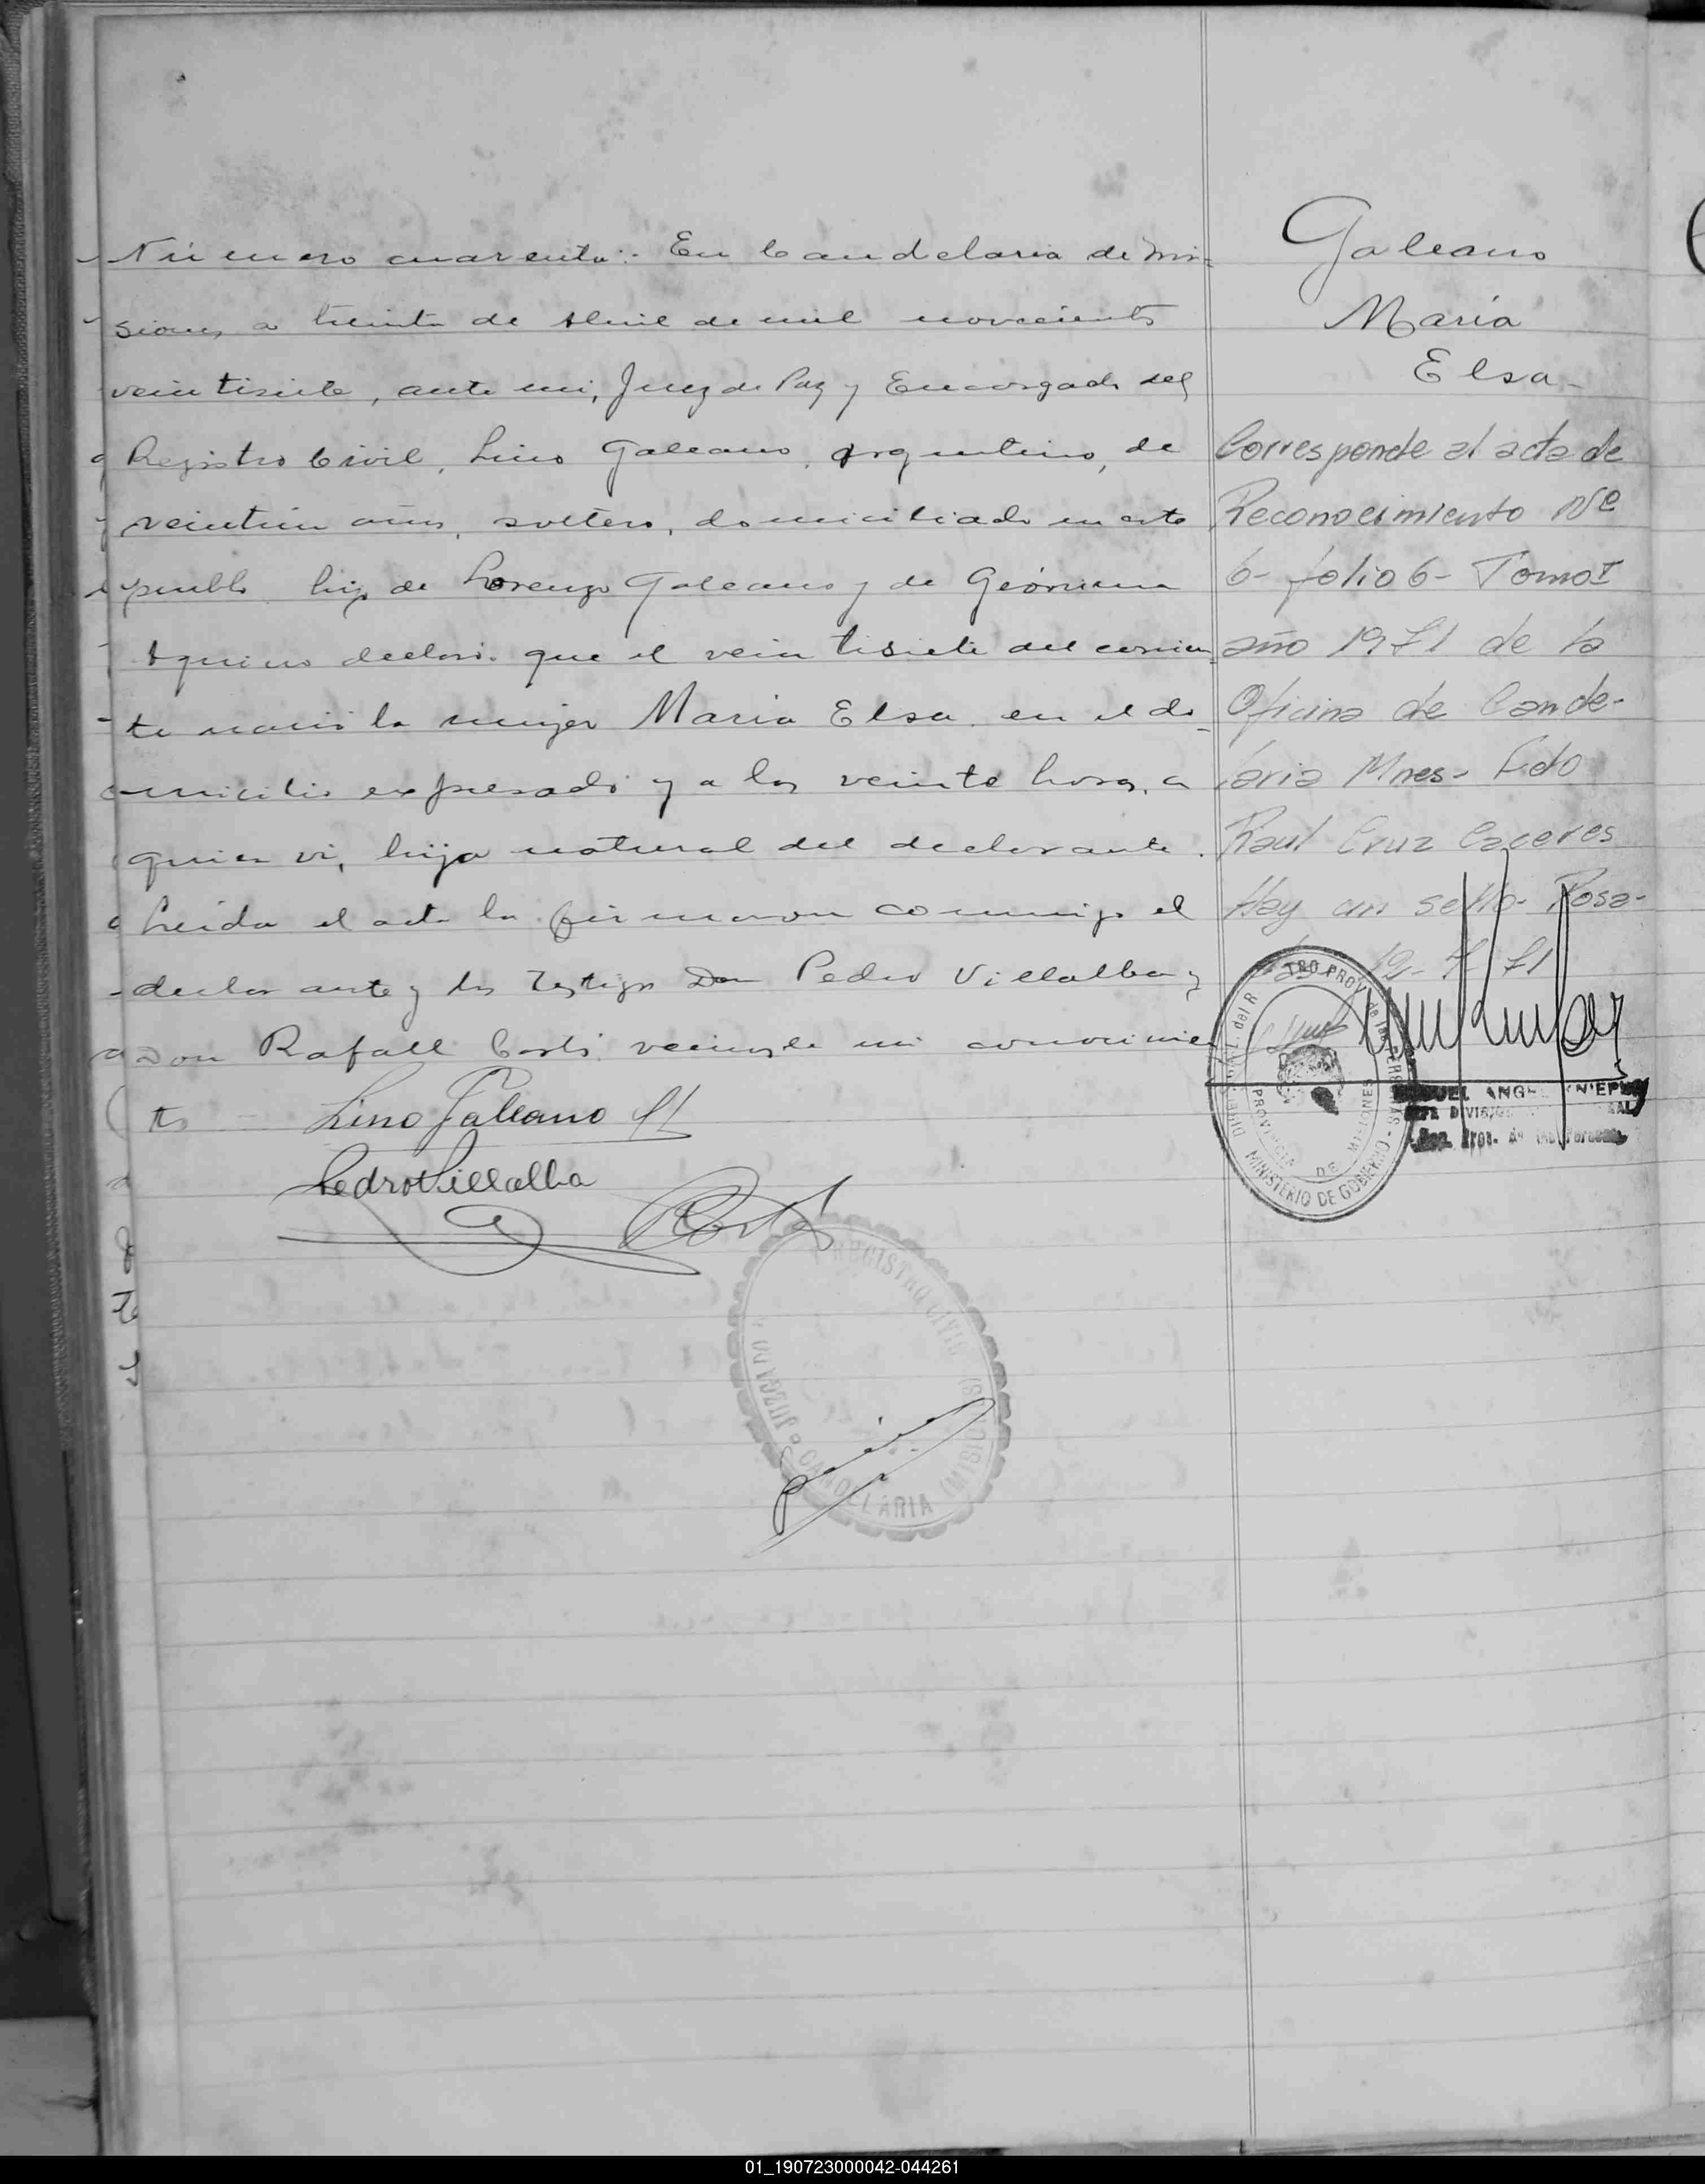 Número cuarenta:- En Candelaria de Mi-
siones, a treinta de Abril de mil novecientos
veintisiete, ante mi, Juez de Paz y Encargado del
Registro Civil, Lino Galeano, argentino, de
veintiun años, soltero, domiciliado en este
pueblo hijo de Lorenzo Galeano y de Gerónima
Aquino declaró: que el veintisiete del corrien-
te nació la mujer María Elsa en el do-
micilio expresado y a las veinte horas, a
quien vi, hija natural del declarante.
Leida el acta la firmaron conmigo el
declarante y los testigos Don Pedro Villalba y
Don Rafael vecinos de mi conocimien
to
Lino Galeano
Pedro Villalba
REGISTRO CIVIL
JUZGADO
CANDELARIA (MISIONES)
Galeano
María
Elsa-
Corresponde al acta de
Reconocimiento Nº
6- folio 6- Tomo I
año 1971 de la
Oficina de Cande-
laria Mnes- Fdo
Raul Cruz Caceres
Hay un sello- Posa-
19- 71
PROV. de las PERSONAS
PROVINCIA DE MISIONES
MINISTERIO DE GOBIERNO